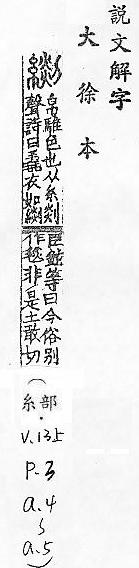 説文解字
大徐本
𦃖
帛騅色也从糸剡
聲詩曰毳衣如𦃖
臣鉉等曰今俗別
作毯非是土敢切
(糸部.
V.13上
P.3
a.4
~
a.5)